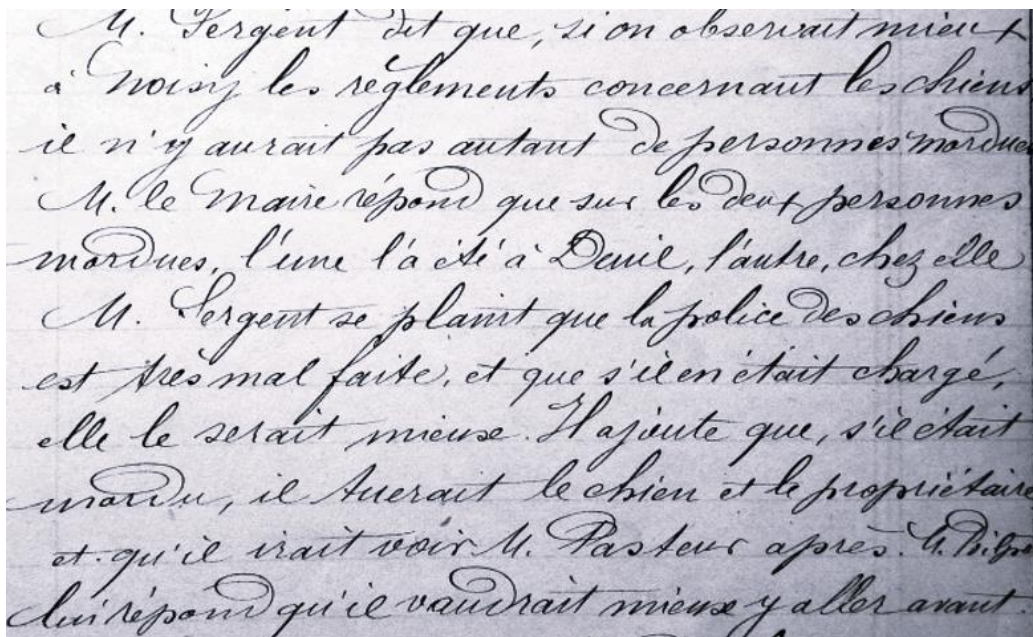 M. Sergent dit que, si on observait mieux
à Noisy les règlements concernant les chiens
il n'y aurait pas autant de personnes mordues
M. le Maire répond que sur les deux personnes
mordues, l'une l'a été à Deuil, l'autre, chez elle
M. Sergent se plaint que la police des chiens
est très mal faite, et que s'il en était chargé,
elle le serait mieux. Il ajoute que, s'il était
mordu, il tuerait le chien et le propriétaire
et qu'il irait voir M. Pasteur après. M.
lui répond qu'il vaudrait mieux y aller avant.